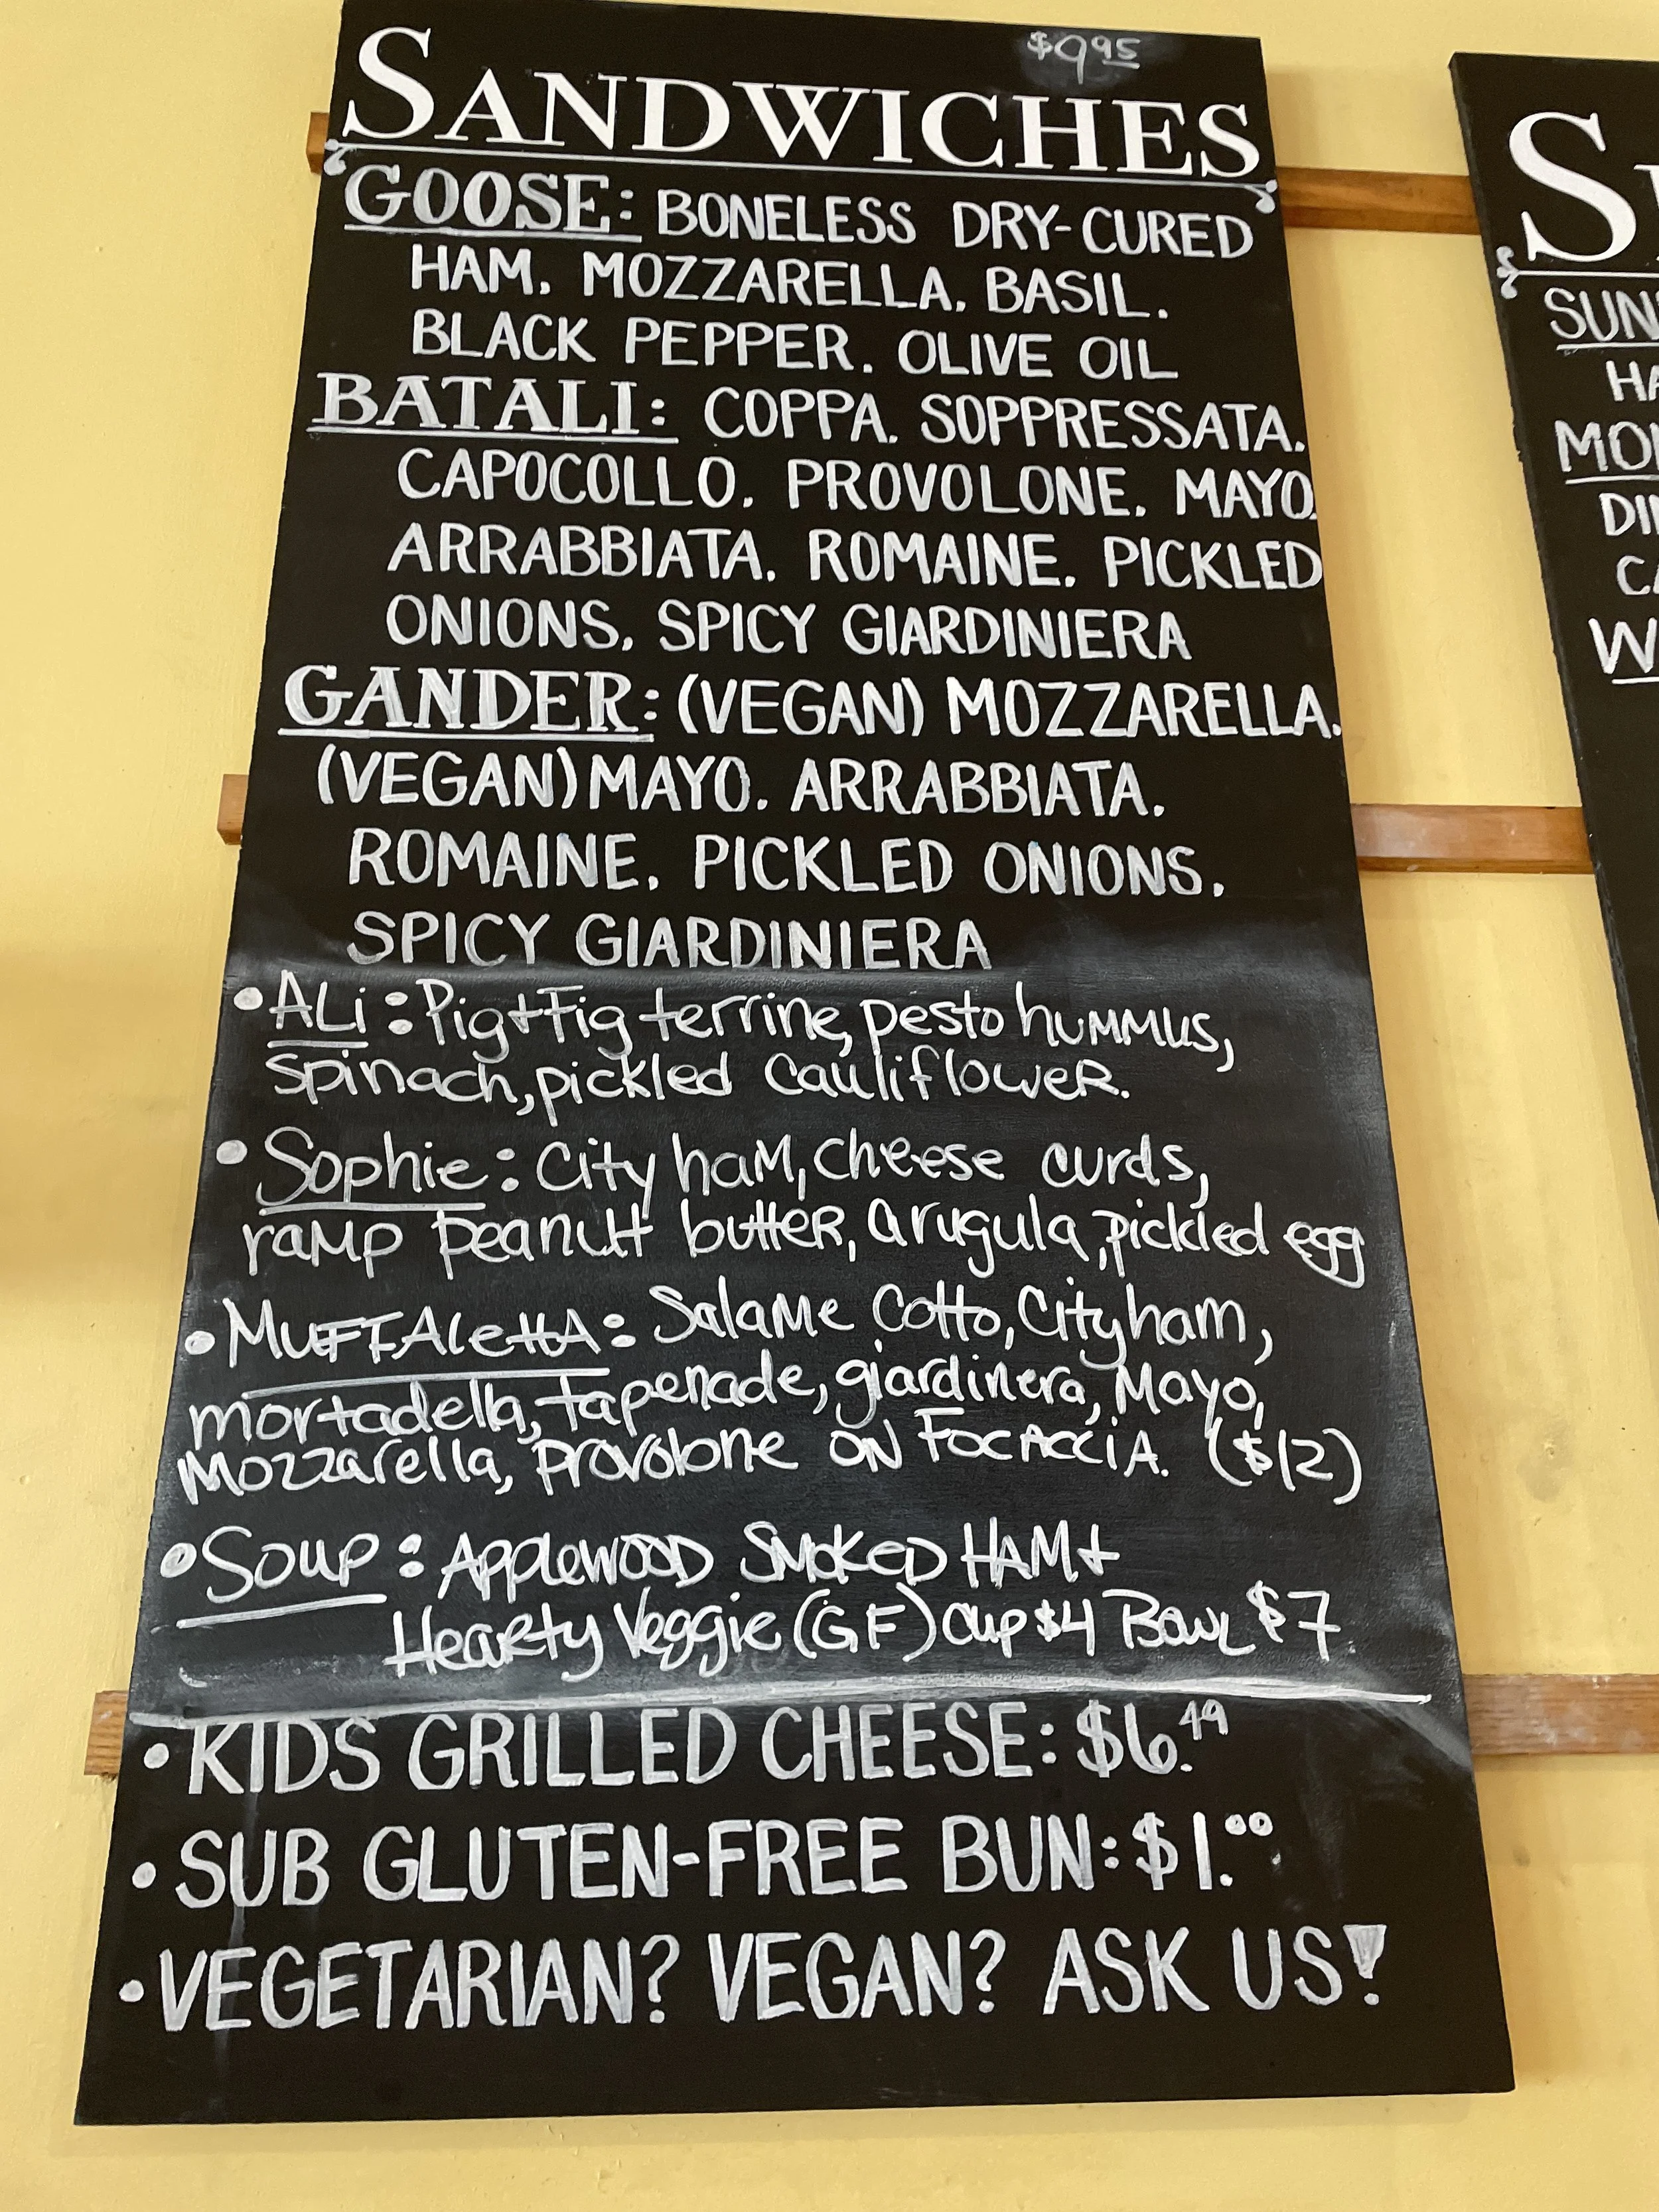 $9.95
SANDWICHES
GOOSE: BONELESS DRY-CURED
HAM. MOZZARELLA. BASIL.
BLACK PEPPER. OLIVE OIL
BATALI: COPPA. SOPPRESSATA.
CAPOCOLLO. PROVOLONE. MAYO.
ARRABBIATA. ROMAINE. PICKLED
ONIONS. SPICY GIARDINIERA
GANDER: (VEGAN) MOZZARELLA.
(VEGAN) MAYO. ARRABBIATA.
ROMAINE. PICKLED ONIONS.
SPICY GIARDINIERA
• ALi: Pig+Fig terrine, pesto hummus,
spinach, pickled cauliflower.
• Sophie: City ham, cheese curds,
ramp peanut butter, arugula, pickled egg
• MuFFAlettA: Salame Cotto, City ham,
mortadella, tapenade, giardinera, Mayo,
Mozzarella, provolone ON FocAcciA. ($12)
• Soup: Applewood Smoked HAM +
Hearty Veggie (GF) Cup $4 Bowl $7
• KIDS GRILLED CHEESE: $6.49
• SUB GLUTEN-FREE BUN: $1.00
• VEGETARIAN? VEGAN? ASK US!
SUN
MON